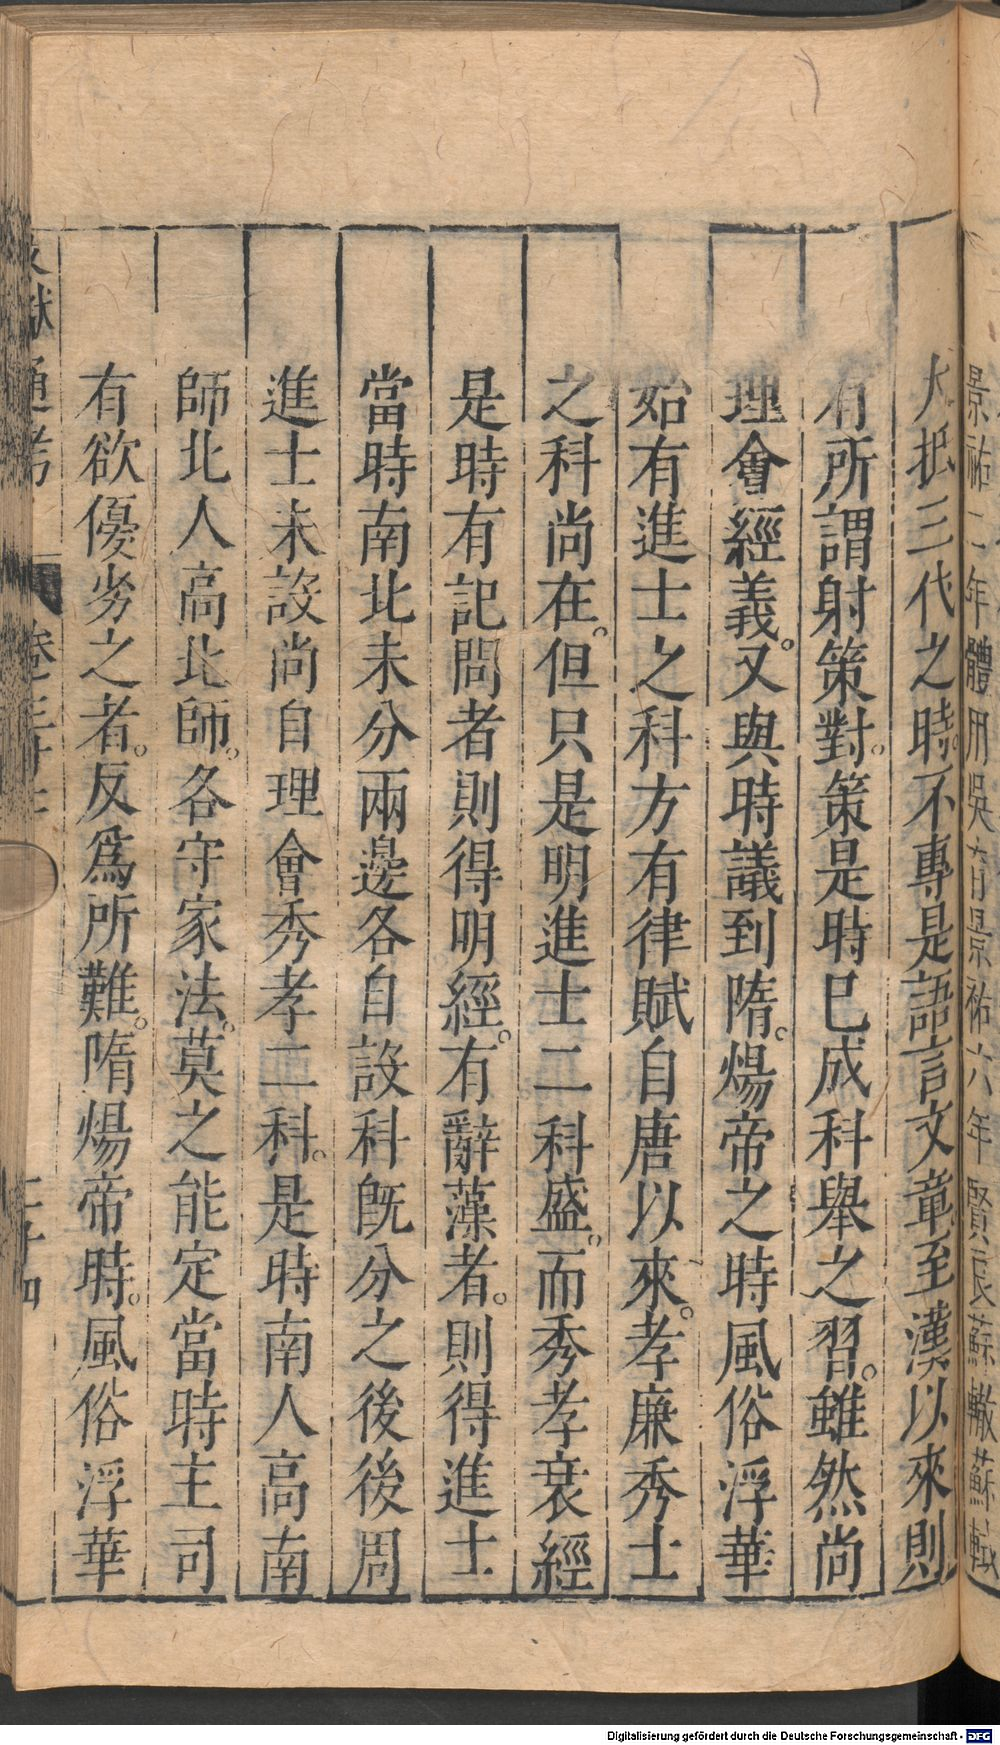 景祐二年體用吳育景祐六年賢良蘇轍蘇軾
大抵三代之時。不專是語言文章至漢以來則
有所謂射策對。策是時已成科舉之習。雖然尚
理會經義。又與時議到隋。煬帝之時風俗浮華
始有進士之科方有律賦自唐以來。孝廉秀士
之科尚在。但只是明進士二科盛。而秀孝衰經
是時有記問者則得明經。有辭藻者。則得進士
當時南北未分兩邊各自設科旣分之後後周
進士未設尚自理會秀孝二科。是時南人高南
師北人高北師。各守家法。莫之能定當時主司
有欲優劣之者。反爲所難。隋煬帝時。風俗浮華
獻通考 卷三十三
Digitalisierung gefördert durch die Deutsche Forschungsgemeinschaft - DFG